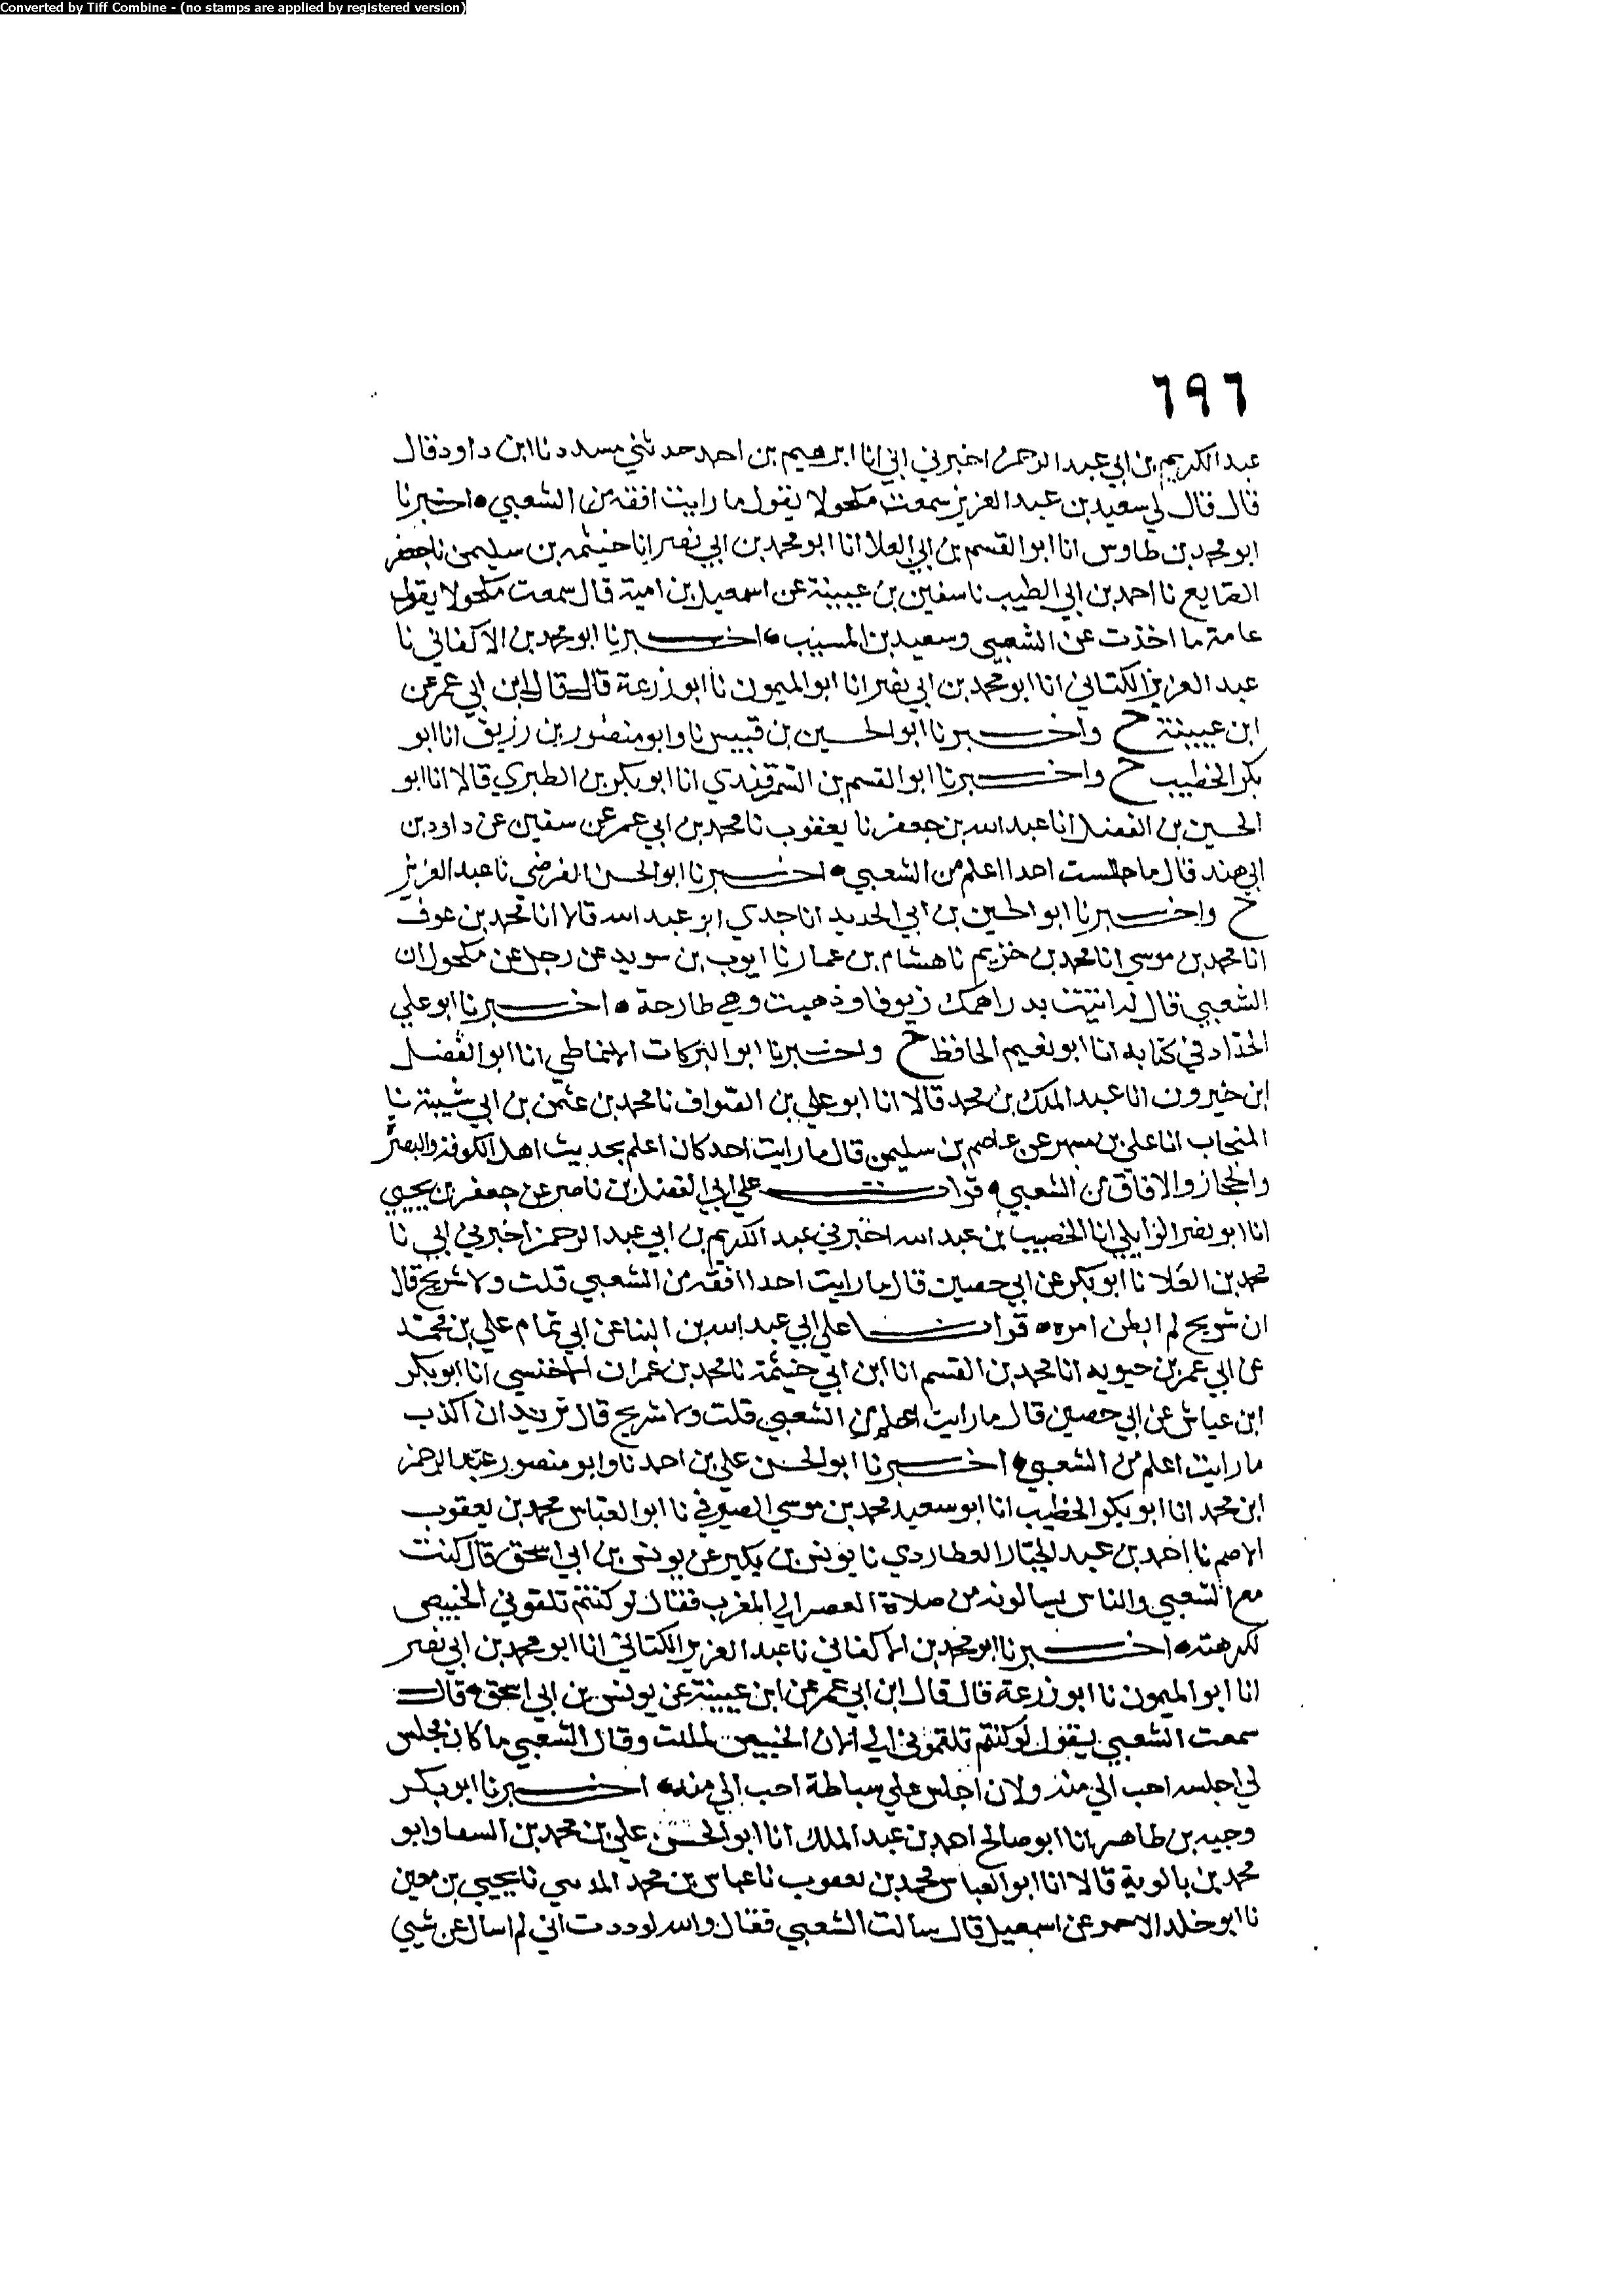 Converted by Tiff Combine - (no stamps are applied by registered version)
٦٩٦
عبد الكريم بن ابي عبد الرحمن اخبرني ابي انا ابرهيم بن احمد حدثني مسدد نا ابن داود قال
قال قال لي سعيد بن عبد العزيز سمعت مكحولا يقول ما رايت افقه من الشعبي ٥ اخبرنا
ابو محمد بن طاوس انا ابو القسم بن ابي العلا انا ابو محمد بن ابي نصر انا خيثمه بن سليمن نا جعفر
الصايع نا احمد بن ابي الطيب نا سفين بن عيينة عن اسمعيل بن امية قال سمعت مكحولا يقول
عامة ما اخذت عن الشعبي وسعيد بن المسيب ٥ اخبرنا ابو محمد بن الاكفاني نا
عبد العزيز الكتاني انا ابو محمد بن ابي نصر انا ابو الميمون نا ابو زرعة قال قال ابن ابي عمر عن
ابن عيينة ح واخبرنا ابو الحسين بن قبيس نا وابو منصور بن زريق انا ابو
بكر الخطيب ح واخبرنا ابو القسم بن السمرقندي انا ابو بكر بن الطبري قالا انا ابو
الحسين بن الفضل انا عبد الله بن جعفر نا يعقوب نا محمد بن ابي عمر عن سفين عن داود بن
ابي هند قال ما جالست احدا اعلم من الشعبي ٥ اخبرنا ابو الحسن الفرضي نا عبد العزيز
ح واخبرنا ابو الحسين بن ابي الحديد انا جدي ابو عبد الله قالا انا محمد بن عوف
انا محمد بن موسي انا محمد بن خزيم نا هشام بن عمار نا ايوب بن سويد عن رجل عن مكحول ان
الشعبي قال له اتيتنا بدراهمك زيوفا وذهبت وهي طارحة ٥ اخبرنا ابو علي
الحداد في كتابه انا ابو نعيم الحافظ ح واخبرنا ابو البركات الانماطي انا ابو الفضل
ابن خيرون انا عبد الملك بن محمد قالا انا ابو علي بن الصواف نا محمد بن عثمن بن ابي شيبة نا
المنجاب انا علي بن مسهر عن عاصم بن سليمن قال ما رايت احد كان اعلم بحديث اهل الكوفة والبصرة
والحجاز والافاق من الشعبي ٥ قرات علي ابي الفضل بن ناصر عن جعفر بن يحيي
انا ابو نصر الوايلي انا الخصيب بن عبد الله اخبرني عبد الكريم بن ابي عبد الرحمن اخبرني ابي نا
محمد بن العلا نا ابو بكر عن ابي حصين قال ما رايت احدا افقه من الشعبي قلت ولا شريح قال
ان شريح لم ابطن امره ٥ قرات علي ابي عبد الله بن البنا عن ابي تمام علي بن محمد
عن ابي عمر بن حيويه انا محمد بن القسم انا ابن ابي خيثمة نا محمد بن عمران الاخنسي انا ابو بكر
ابن عياش عن ابي حصين قال ما رايت اعلم من الشعبي قلت ولا شريح قال تريد ان اكذب
ما رايت اعلم من الشعبي ٥ اخبرنا ابو الحسن علي بن احمد نا وابو منصور عبد الرحمن
ابن محمد انا ابو بكر الخطيب انا ابو سعيد محمد بن موسي الصيرفي نا ابو العباس محمد بن يعقوب
الاصم نا احمد بن عبد الجبار العطاردي نا يونس بن بكير عن يونس بن ابي اسحق قال كنت
مع الشعبي والناس يسالونه من صلاة العصر الي المغرب فقال لو كنتم تلقوني الخبيص
لكرهته ٥ اخبرنا ابو محمد بن الاكفاني نا عبد العزيز الكتاني انا ابو محمد بن ابي نصر
انا ابو الميمون نا ابو زرعة قال قال ابن ابي عمر عن ابن عيينة عن يونس بن ابي اسحق ٥ قال
سمعت الشعبي يقول لو كنتم تلقموني الخبيص لمللت وقال الشعبي ما كان مجلس
لي اجلسه احب الي منه ولان اجلس علي سباطة احب الي منه ٥ اخبرنا ابو بكر
وجيه بن طاهر انا ابو صالح احمد بن عبد الملك انا ابو الحسن علي بن محمد بن السقا وابو
محمد بن بالوية قالا انا ابو العباس محمد بن يعقوب نا عباس بن محمد نا يحيي بن معين
نا ابو خلد الاحمر عن اسمعيل قال سالت الشعبي فقال والله لوددت اني لم اسال عن شيي